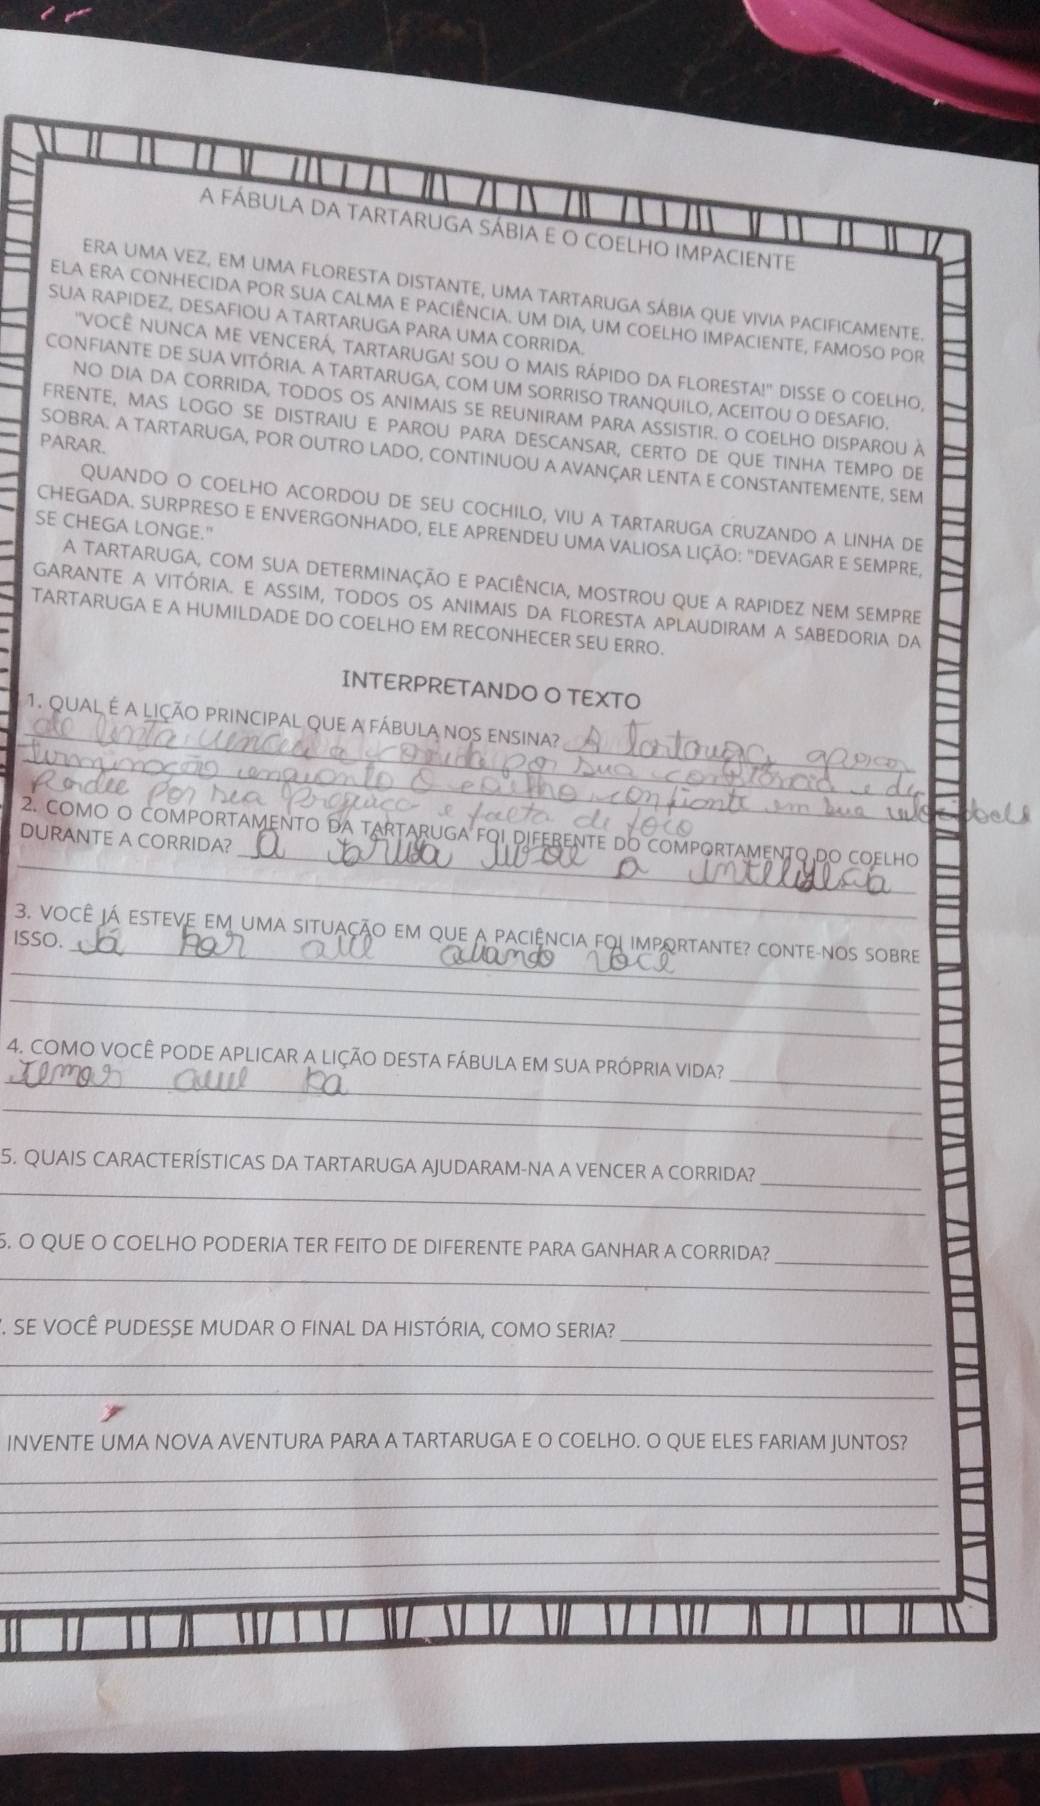 A FÁBULA DA TARTARUGA SÁBIA E O COELHO IMPACIENTE
ERA UMA VEZ, EM UMA FLORESTA DISTANTE, UMA TARTARUGA SÁBIA QUE VIVIA PACIFICAMENTE.
ELA ERA CONHECIDA POR SUA CALMA E PACIÊNCIA. UM DIA, UM COELHO IMPACIENTE, FAMOSO POR
SUA RAPIDEZ, DESAFIOU A TARTARUGA PARA UMA CORRIDA.
"VOCÊ NUNCA ME VENCERÁ, TARTARUGA! SOU O MAIS RÁPIDO DA FLORESTA!" DISSE O COELHO,
CONFIANTE DE SUA VITÓRIA. A TARTARUGA, COM UM SORRISO TRANQUILO, ACEITOU O DESAFIO.
NO DIA DA CORRIDA, TODOS OS ANIMAIS SE REUNIRAM PARA ASSISTIR. O COELHO DISPAROU À
FRENTE, MAS LOGO SE DISTRAIU E PAROU PARA DESCANSAR, CERTO DE QUE TINHA TEMPO DE
SOBRA. A TARTARUGA, POR OUTRO LADO, CONTINUOU A AVANÇAR LENTA E CONSTANTEMENTE, SEM
PARAR.
QUANDO O COELHO ACORDOU DE SEU COCHILO, VIU A TARTARUGA CRUZANDO A LINHA DE
CHEGADA. SURPRESO E ENVERGONHADO, ELE APRENDEU UMA VALIOSA LIÇÃO: "DEVAGAR E SEMPRE,
SE CHEGA LONGE."
A TARTARUGA, COM SUA DETERMINAÇÃO E PACIÊNCIA, MOSTROU QUE A RAPIDEZ NEM SEMPRE
GARANTE A VITÓRIA. E ASSIM, TODOS OS ANIMAIS DA FLORESTA APLAUDIRAM A SABEDORIA DA
TARTARUGA E A HUMILDADE DO COELHO EM RECONHECER SEU ERRO.
INTERPRETANDO O TEXTO
1. QUAL É A LIÇÃO PRINCIPAL QUE A FÁBULA NOS ENSINA? A
de lenta a corrida por sua e de
terminação o confiante em sua
por sua e de foco
2. COMO O COMPORTAMENTO DA TARTARUGA FOI DIFERENTE DO COMPORTAMENTO DO COELHO
DURANTE A CORRIDA? a a
3. VOCÊ JÁ ESTEVE EM UMA SITUAÇÃO EM QUE A PACIÊNCIA FOI IMPORTANTE? CONTE-NOS SOBRE
ISSO. você
4. COMO VOCÊ PODE APLICAR A LIÇÃO DESTA FÁBULA EM SUA PRÓPRIA VIDA?
5. QUAIS CARACTERÍSTICAS DA TARTARUGA AJUDARAM-NA A VENCER A CORRIDA?
6. O QUE O COELHO PODERIA TER FEITO DE DIFERENTE PARA GANHAR A CORRIDA?
. SE VOCÊ PUDESSE MUDAR O FINAL DA HISTÓRIA, COMO SERIA?
INVENTE UMA NOVA AVENTURA PARA A TARTARUGA E O COELHO. O QUE ELES FARIAM JUNTOS?